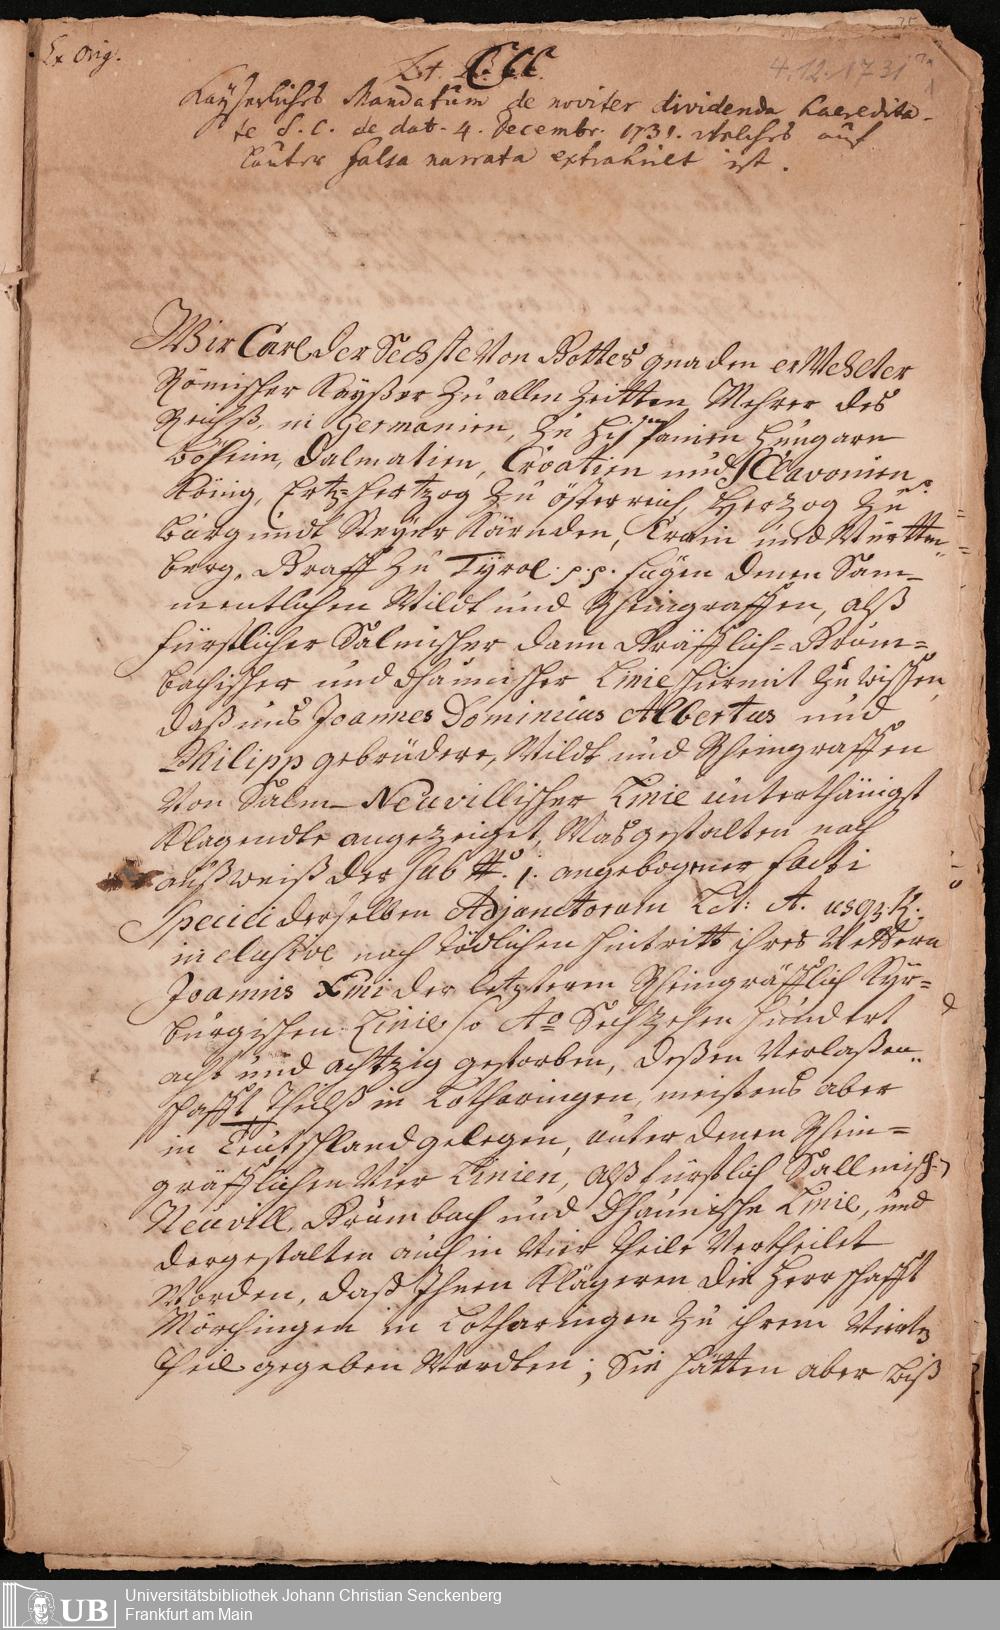 Ex Orig.
4.12.1731
Lit. CCC.
Kayserliches Mandatum de noviter dividenda haeredita-
te S. C. de dat. 4. Decembr. 1731. welches auf
lauter falsa narrata extrahirt ist.
Wir Carl der Sechste Von Gottes gnaden erWehlter
Römischer Kayßer Zu allen Zeitten Mehrer des
Reichß, in Germanien, Zu Hispanien Hungarn
Böheim, Dalmatien, Croatien und Sclavonien
König, Ertz-Hertzog Zu Österreich, Herzog Zu
Burgundt Steyer Kärnden, Crain und Württen-
berg, Graff Zu Tyrol. p. p. fügen denen Sam-
mentlichen Wildt und Rheingraffen, alß
fürstlicher Salmischer dann Gräfflich-Grum-
bachischer und Dhaunischer Linie hiermit Zu wissen,
daß uns Joannes Dominicus Albertus und
Philipp gebrüdere, Wildt und Rheingraffen
Von Salm-Neuvillischer Linie unterthänigst
Klagendte angezeiget, Wasgestalten nach
außweiß der sub No. 1. angebogener facti
Speciei derselben Adjunctorum Lit: A. usq3 K.
inclusive nach tödlichen Hintritt ihres Vettern
Joannis XmI der letzteren Rheingräfflich Kyr-
burgischen Linie so Ao Sechzehen Hundert
acht und achtzig gestorben, deßen Verlaßen-
schafft Theilß in Lotharingen, meistens aber
in Teutschland gelegen, unter denen Rhein-
gräfflichen Vier Linien, alß fürstlich Sallmisch-
Neuvill, Grumbach und Dhaunische Linie, und
dergestalten auch in Vier Theile Vertheilet
Worden, daß Ihnen Klägeren die Herrschafft
Mörchingen in Lotharingen Zu ihrem Vierten
Theil gegeben Wordten; Sie hätten aber biß
UB
Universitätsbibliothek Johann Christian Senckenberg
Frankfurt am Main